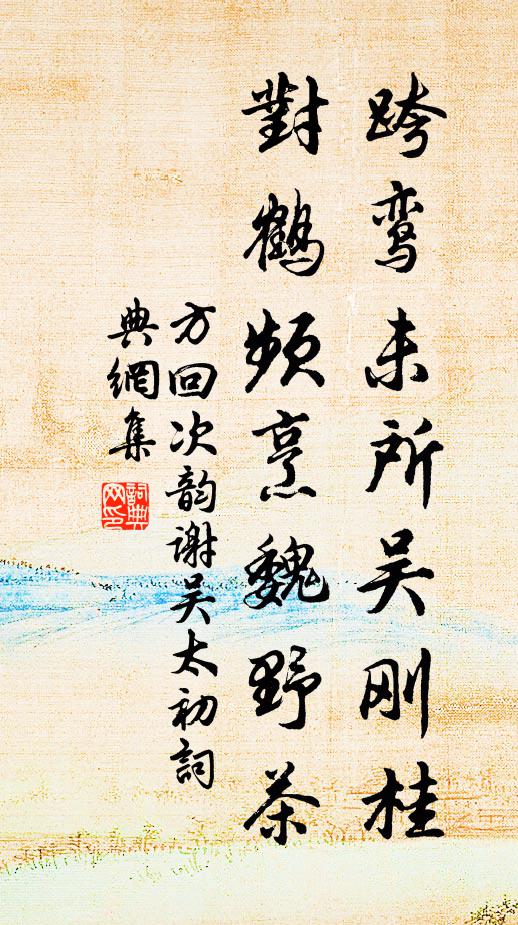 跨鸾未所吴刚桂
對鹤频烹魏野茶
方回次韵谢吴太初詞
典網集
詞典
网印